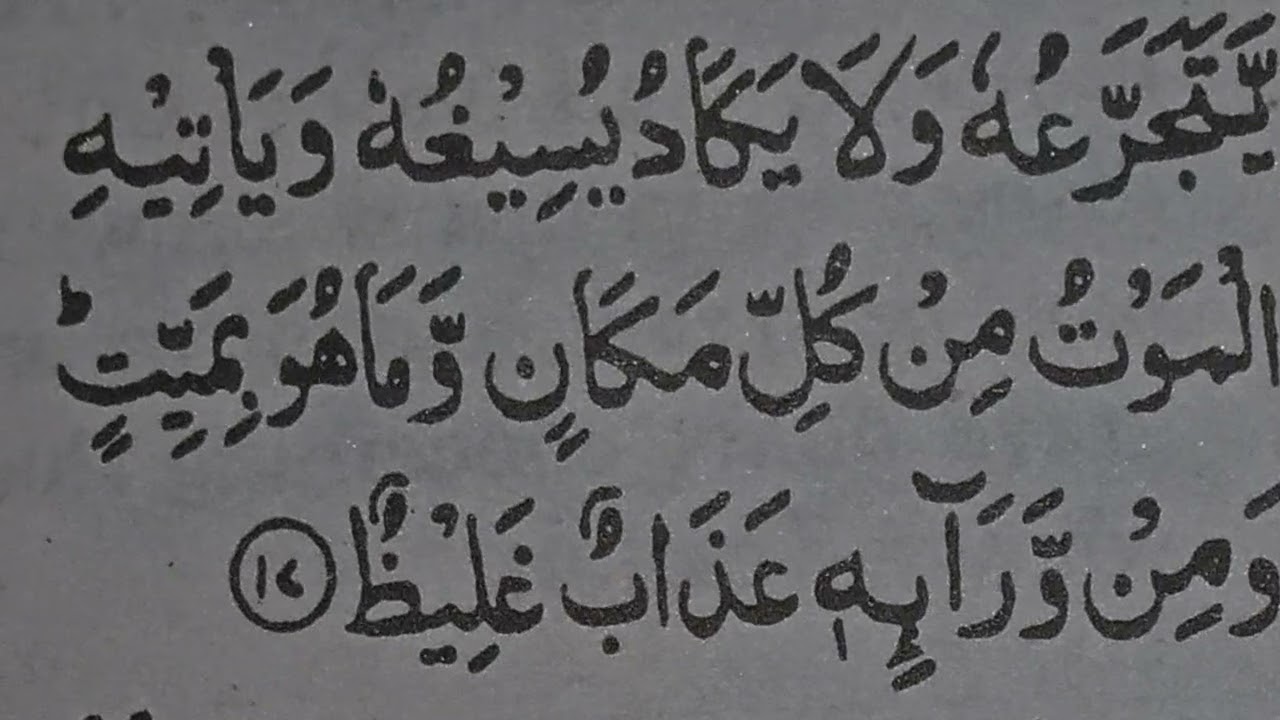 يَّتَجَرَّعُهٗ وَلَا يَكَادُ يُسِيْغُهٗ وَيَاْتِيْهِ
الْمَوْتُ مِنْ كُلِّ مَكَانٍ وَّمَا هُوَ بِمَيِّتٍ ؕ
وَمِنْ وَّرَآىِٕهٖ عَذَابٌ غَلِيْظٌ ⁠﴿۱۷﴾